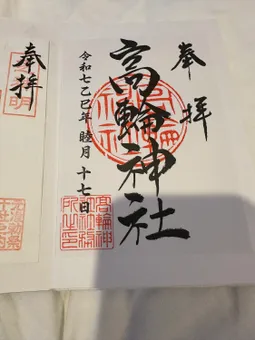 奉拝
高輪神社
令和七乙巳年睦月十七日
高輪神社
高輪神社社務所之印
奉拝